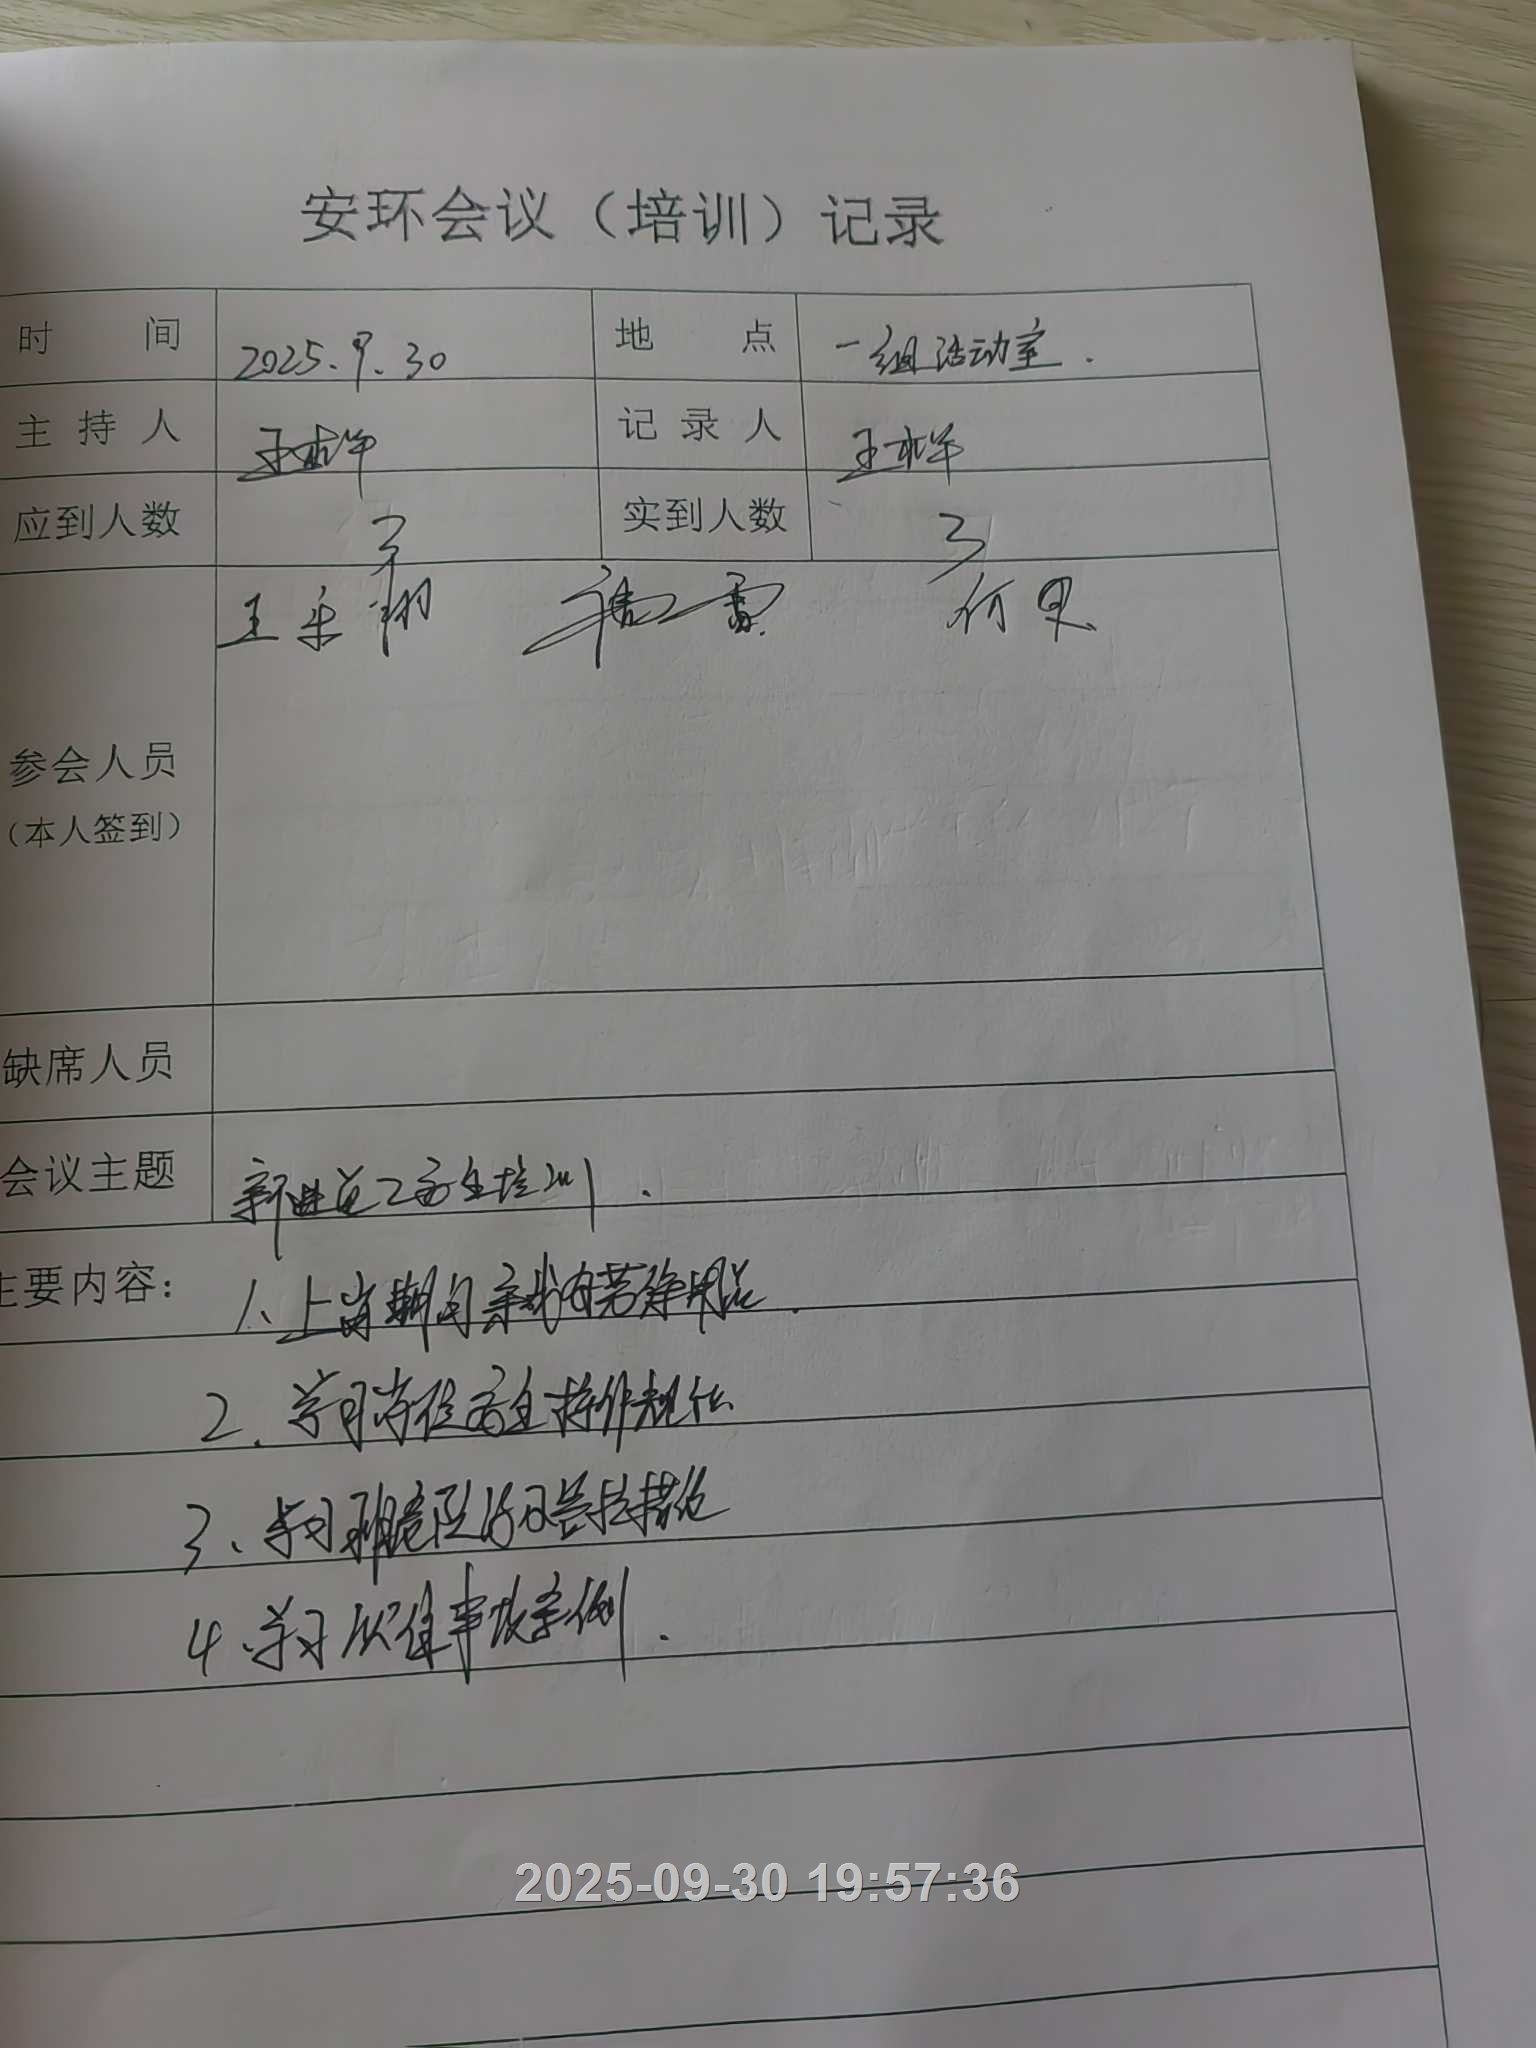 安环会议（培训）记录
时 间 2025.9.30 地 点 一组活动室.
主 持 人 王 记 录 人 王
应到人数 3 实到人数 3
王 翔 雷 何
参会人员
（本人签到）
缺席人员
会议主题 新进员工安全培训.
主要内容: 1、上岗期间 用品.
2、学习岗位安全操作规
3、学习班 措施
4、学习 事故案例.
2025-09-30 19:57:36